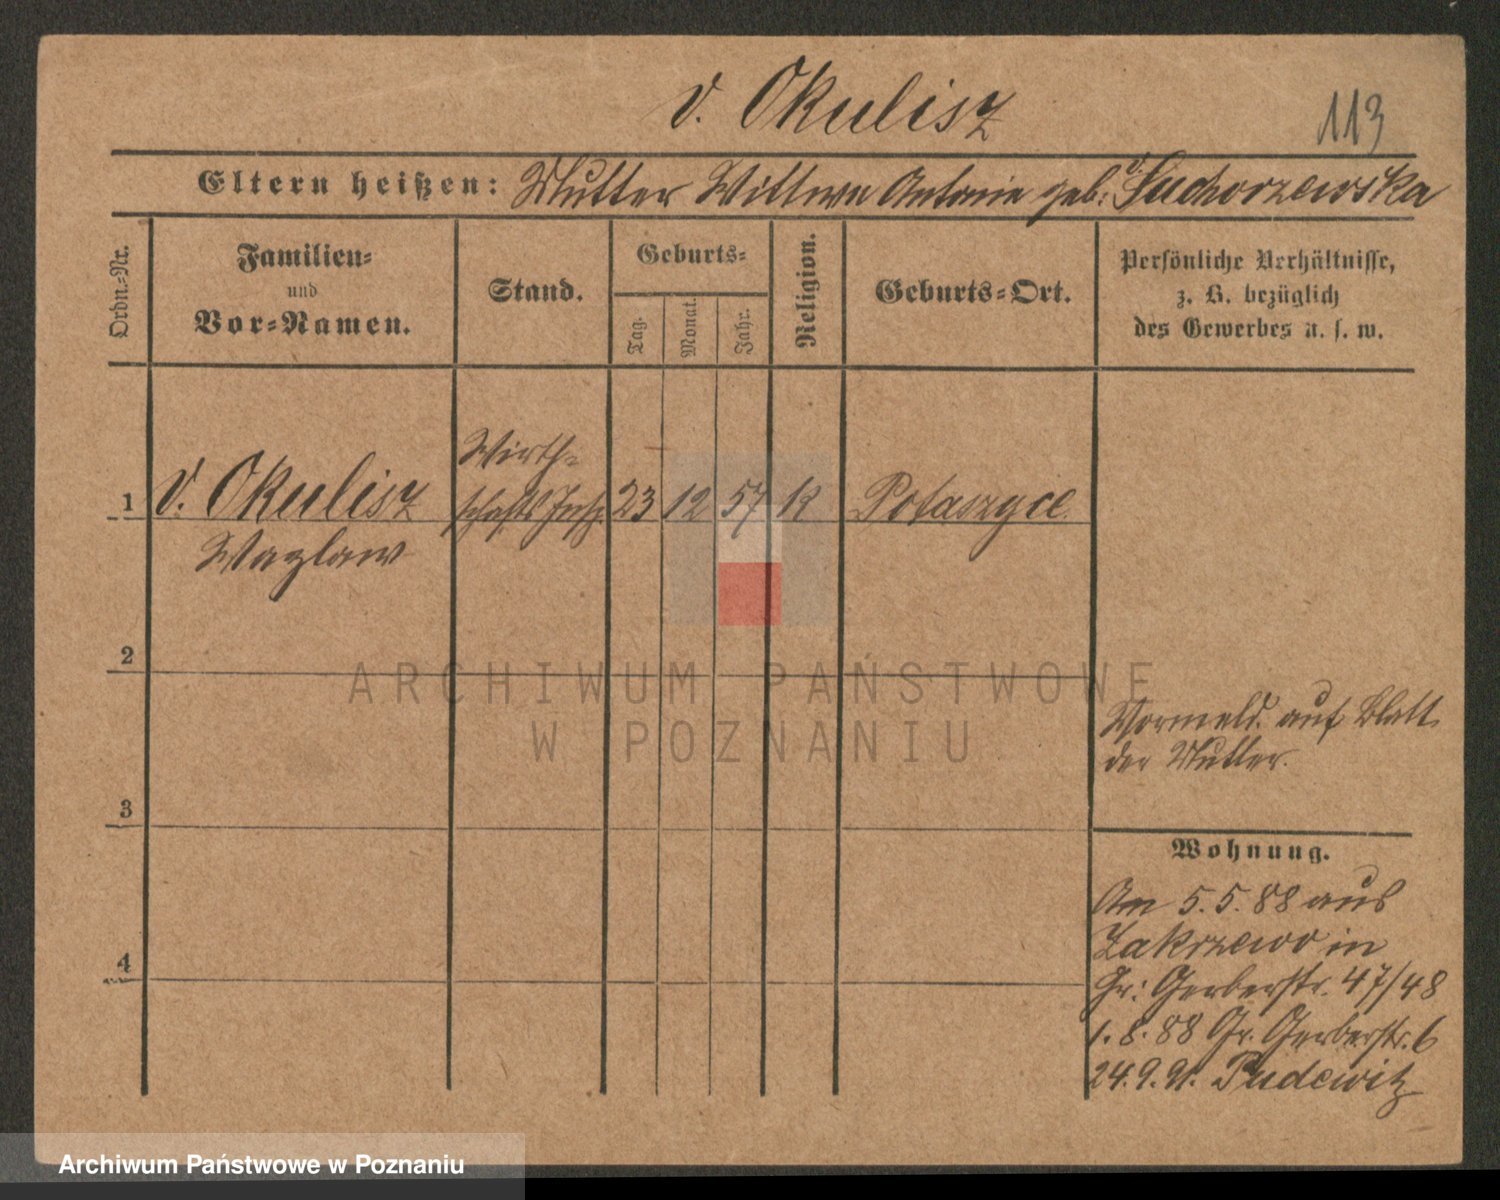 v. Okulisz
113
Eltern heißen: Mutter Wittwe Antonie geb: v. Suchorzewska
Ordn.-Nr.
Familien-
und
Vor-Namen.
Stand.
Geburts-
Tag.
Monat.
Jahr.
Religion.
Geburts-Ort.
Persönliche Verhältnisse,
z. B. bezüglich
des Gewerbes u. s. w.
Wirth-
1 v. Okulisz schafts Insp. 23 12 57 k Potaszyce
Wazlaw
2
ARCHIWUM PAŃSTWOWE
W POZNANIU
Vormeld. auf Blatt
der Mutter.
3
Wohnung.
Am 5.5.88 aus
Zakrzewo in
Gr: Gerberstr. 47/48
1.8.88 Gr. Gerberstr. 6
24.9.91. Pudewitz
4
Archiwum Państwowe w Poznaniu